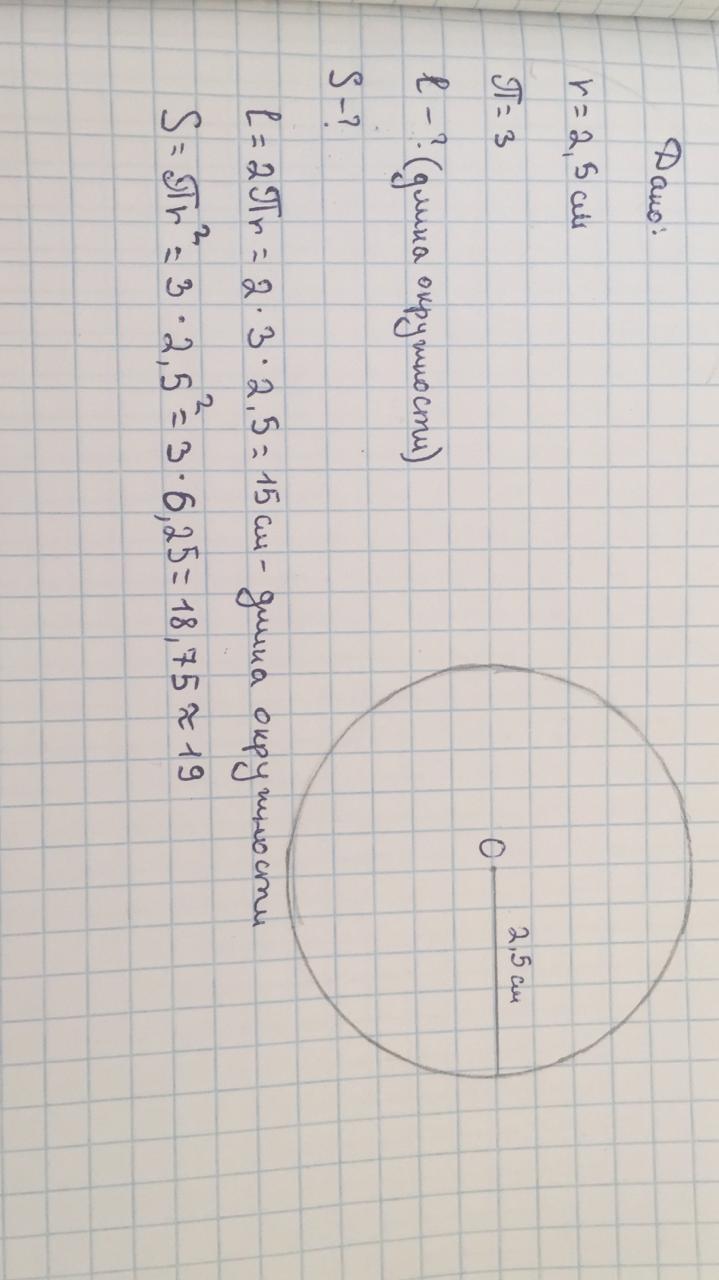 Дано:
r = 2,5 см
П = 3
ℓ - ? (длина окружности)
S - ?
O
2,5 см
ℓ = 2Пr = 2 · 3 · 2,5 = 15 см - длина окружности
S = Пr² = 3 · 2,5² = 3 · 6,25 = 18,75 ≈ 19